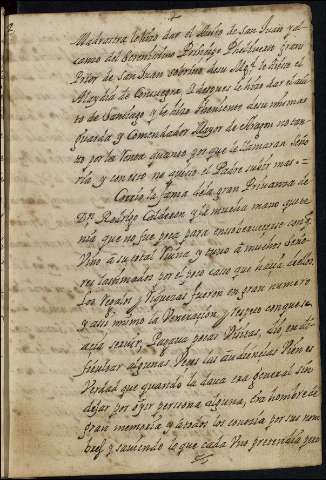 Madrastra le hizo dar el Auito de San Juan y al
camo del Serenissimo Principe Philiberto gran
Prior de San Juan sobrino de su Magd. le dieron el
Alcaydia de Consuegra. Despues le hizo dar el abi
to de Santiago y le hizo theniente de su misma
guarda y Comendador Mayor de Aragon no tan
to por la Renta quanto por que le llamaran Seño
ria y con esto no quiso el Padre subir mas.=
Corrio la fama de la gran Priuanza de
Dn. Rodrigo Calderon y la mucha mano que te
nia que no fue poca para ensoberuecerse con q.
vino à su total Ruina, y tuvo à muchos Seño
res lastimados por el poco caso que hacia dellos.
Los regalos y Riquezas fueron en gran numero
y assi mismo la Veneracion y respeto con que se
hacia seruir, Pagaua pocas Visitas, dio en di
ficultar algunas Veces las audiencias bien es
Verdad que quando la daua era general sin
dejar por oyr persona alguna, Era hombre de
gran memoria y à todos los conosia por sus nom
bres y sauiendo lo que cada Vno pretendia pero